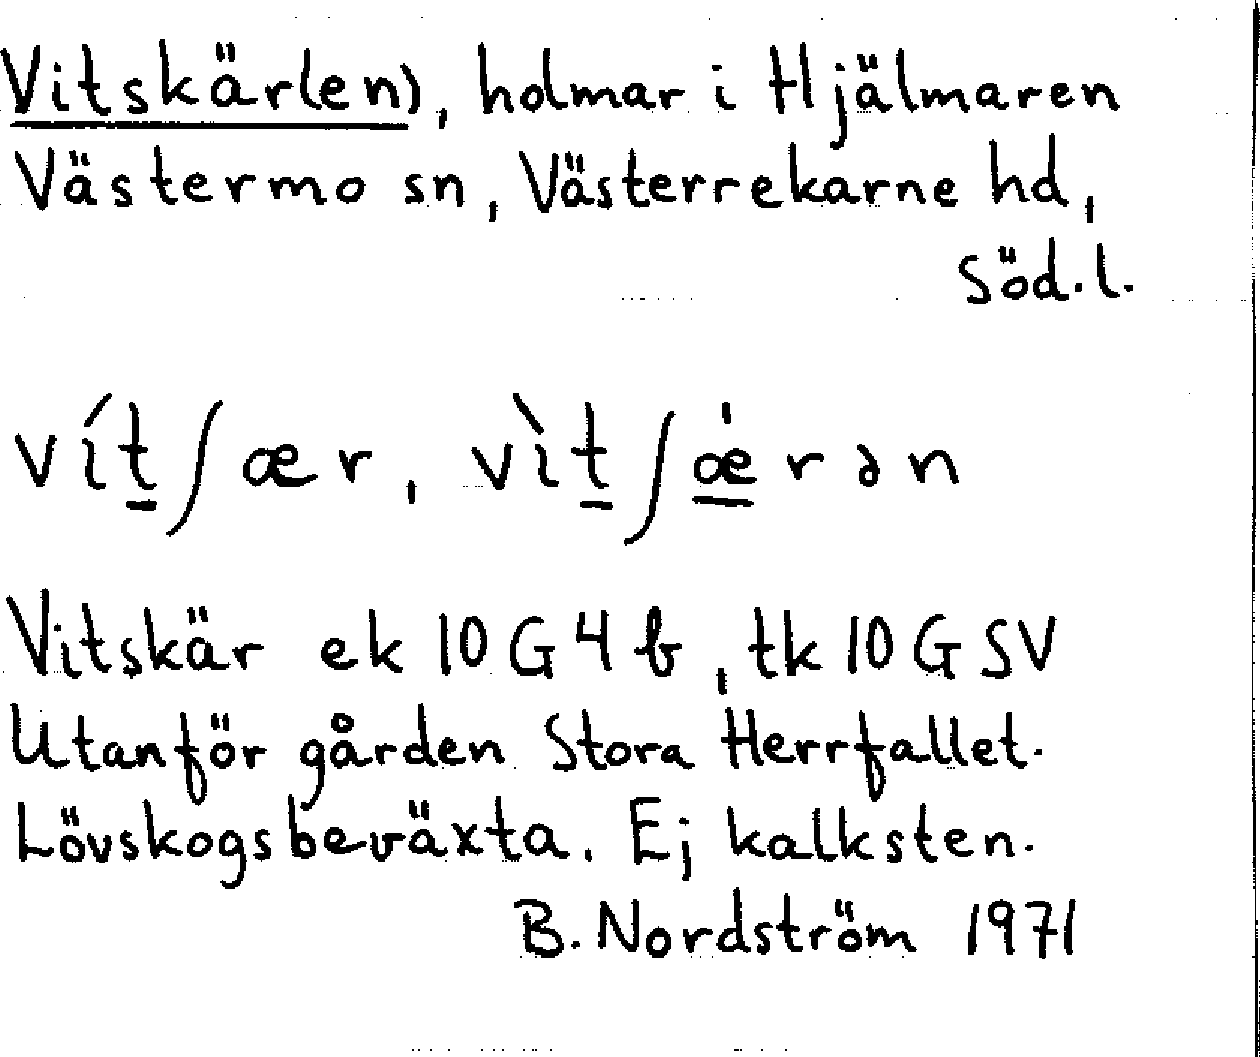 Vitskär(en), holmar i Hjälmaren
Västermo sn, Västerrekarne hd,
Söd.l.
vít̲ʃær, vìt̲ʃæ̳̇rən
Vitskär ek 10G4b, tk 10GSV
Utanför gården Stora Herrfallet.
Lövskogsbeväxta. Ej kalksten.
B. Nordström 1971